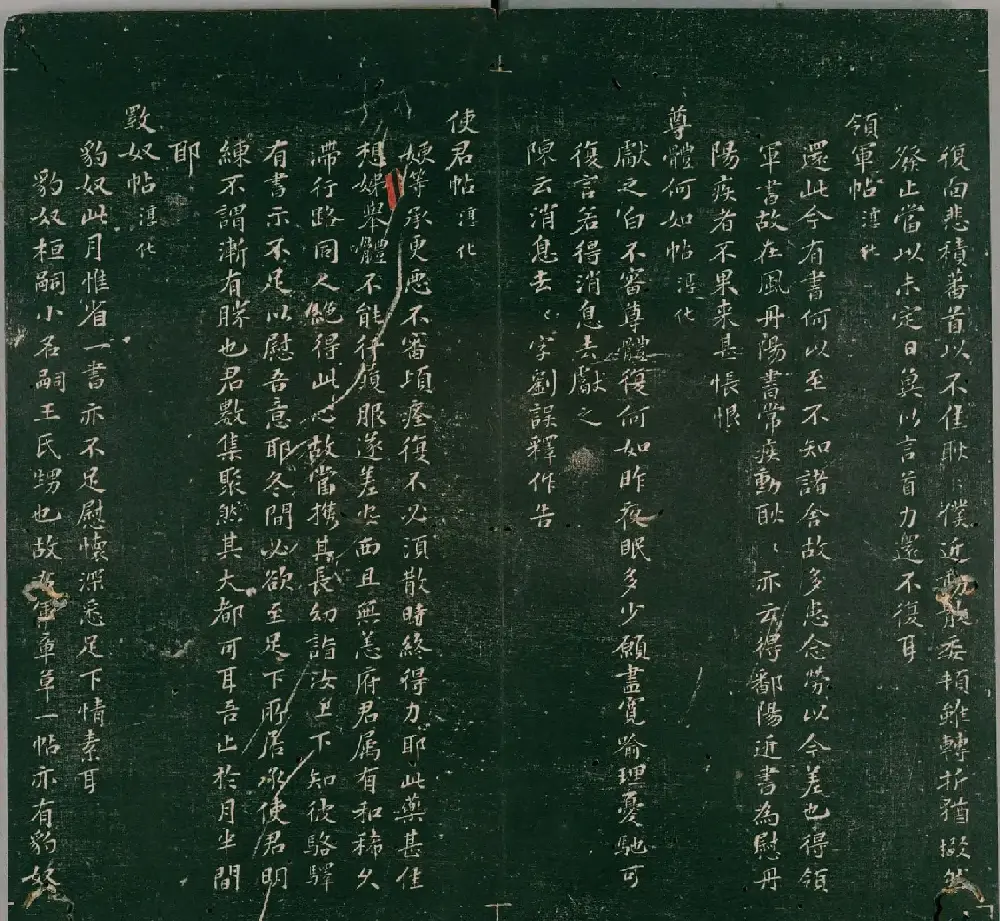 復面悲積蕃首以不佳耿〻懞近動散委頓雖轉折猶掇然
發止當以未定日冀以言首力還不復耳
領軍帖 淳化
還此今有書何以至不知諸舍故多患念勞以今差也得領
軍書故在風丹陽書常疾動耿〻亦云得鄱陽近書為慰丹
陽疾者不果来甚悵恨
尊體何如帖 淳化
獻之白不審尊體復何如昨夜眠多少願盡寬喻理憂馳可
復言若得消息去獻之
陳云消息去〻字劉誤釋作告
使君帖 淳化
嫂等承更惡不審頃痊復不必須散時終得力耶此藥甚佳
想姊舉體不能行積服遂差也西且無恙府君属有和稀久
滯行路同人絶得此也故當携其長幼詣汝上下知彼駱驛
有書示不足以慰吾意耶冬間必欲至足下所居承使君明
練不謂漸有勝也君數集聚然其大都可耳吾止於月半間
耶
豹奴帖 淳化
豹奴此月惟省一書亦不足慰懷深悉足下情素耳
豹奴桓嗣小名嗣王氏甥也故右軍章草一帖亦有豹奴